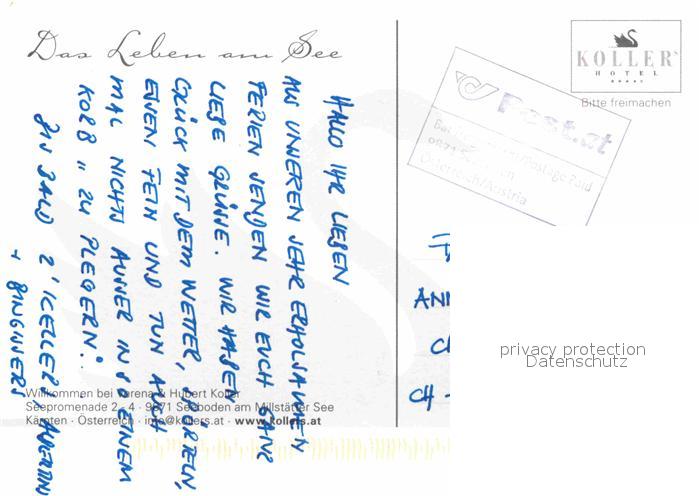 Das Leben am See
HALLO IHR LIEBEN
AUS UNSEREN SEHR ERHOLSAMEN
FERIEN SENDEN WIR EUCH GANZ
LIEBE GRÜSSE. WIR HABEN
GLÜCK MIT DEM WETTER,
ESSEN FEIN UND TUN AUCH
MAL NICHTS AUSSER IN SO EINEM
KORB "ZU PLEGERN".
BIS BALD
Willkommen bei Verena & Hubert Koller
Seepromenade 2 - 4 · 9871 Seeboden am Millstätter See
Kärnten · Österreich · info@kollers.at · www.kollers.at
KOLLER'S
HOTEL
Bitte freimachen
Post.at
Österreich/Austria
CH -
privacy protection
Datenschutz